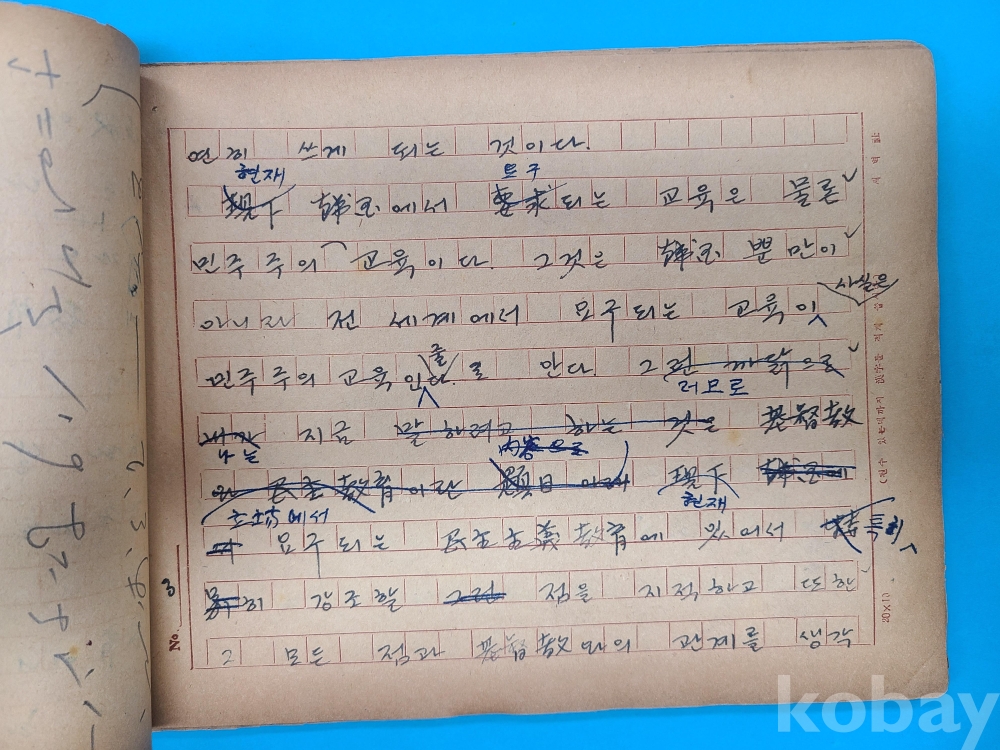 연히 쓰게 되는 것이다.
현재 요구
現下 韓国에서 要求되는 교육은 물론
민주주의 교육이다. 그것은 韓国 뿐만이
아니라 전 세계에서 요구되는 교육이
사실은
민주주의 교육인 줄로 안다. 그런 까닭으로
러므로
내가 지금 말하려고 하는 것은 基督教
나는
内容으로
와 民主 教育이란 題目 現下 韓国에
현재
立場에서
요구되는 民主主義 教育에 있어서 특히
히 강조할 그런 점을 지적하고 또한
그 모든 점과 基督教와의 관계를 생각
No. 3
20×10
kobay